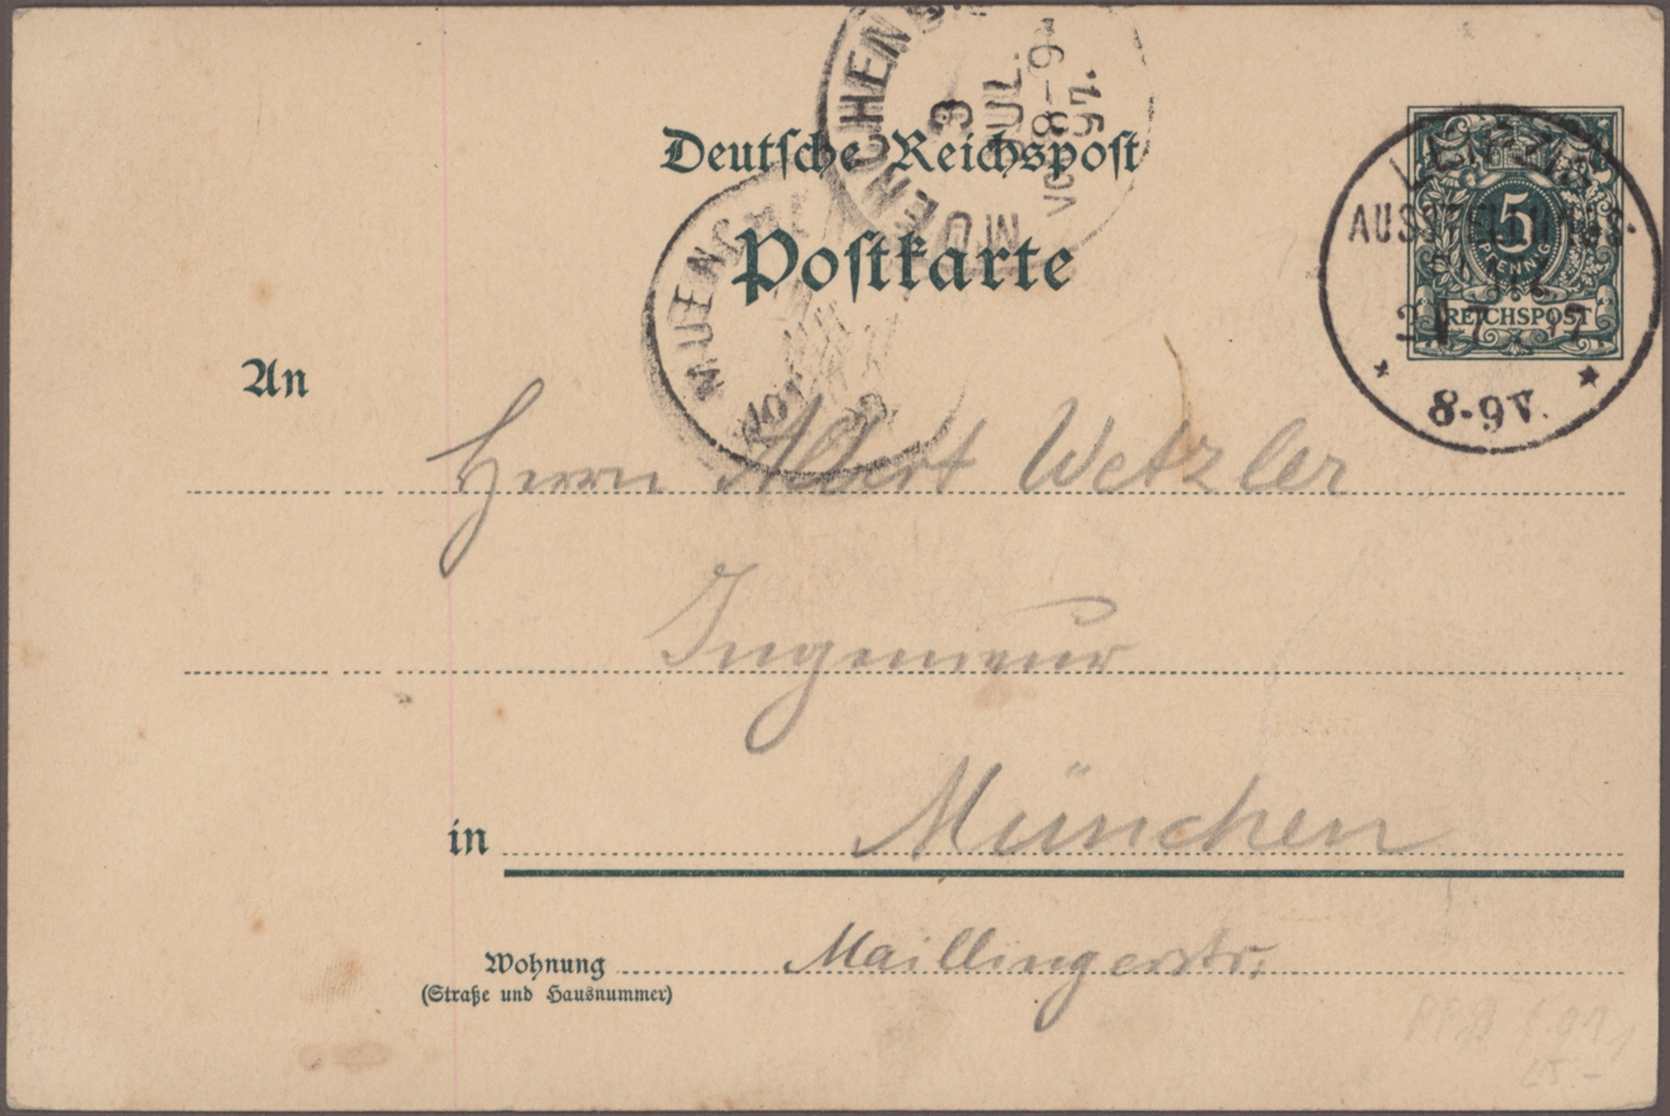 MUENCHEN
3
JUL.
VOR. 8-9
97.
Deutsche Reichspost
Postkarte
MUENCHEN
VOR
LEIPZIG
AUSSTELLUNGS-
PLATZ
2 7 97
8-9V.
5
PFENNIG
REICHSPOST
An
Herrn Albert Wetzler
Ingenieur
in München
Wohnung Maillingerstr.
(Straße und Hausnummer)